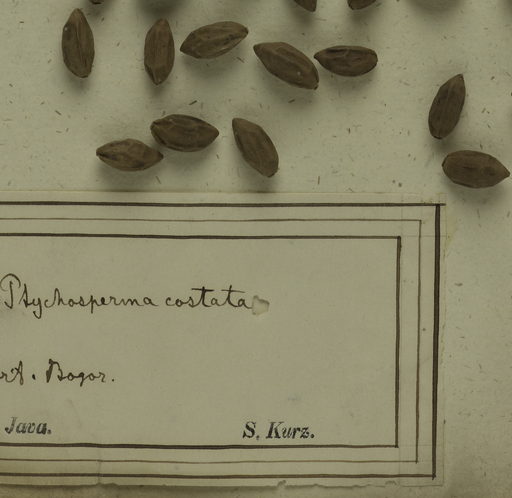 Ptychosperma costata
rt. Bogor.
Java. S. Kurz.